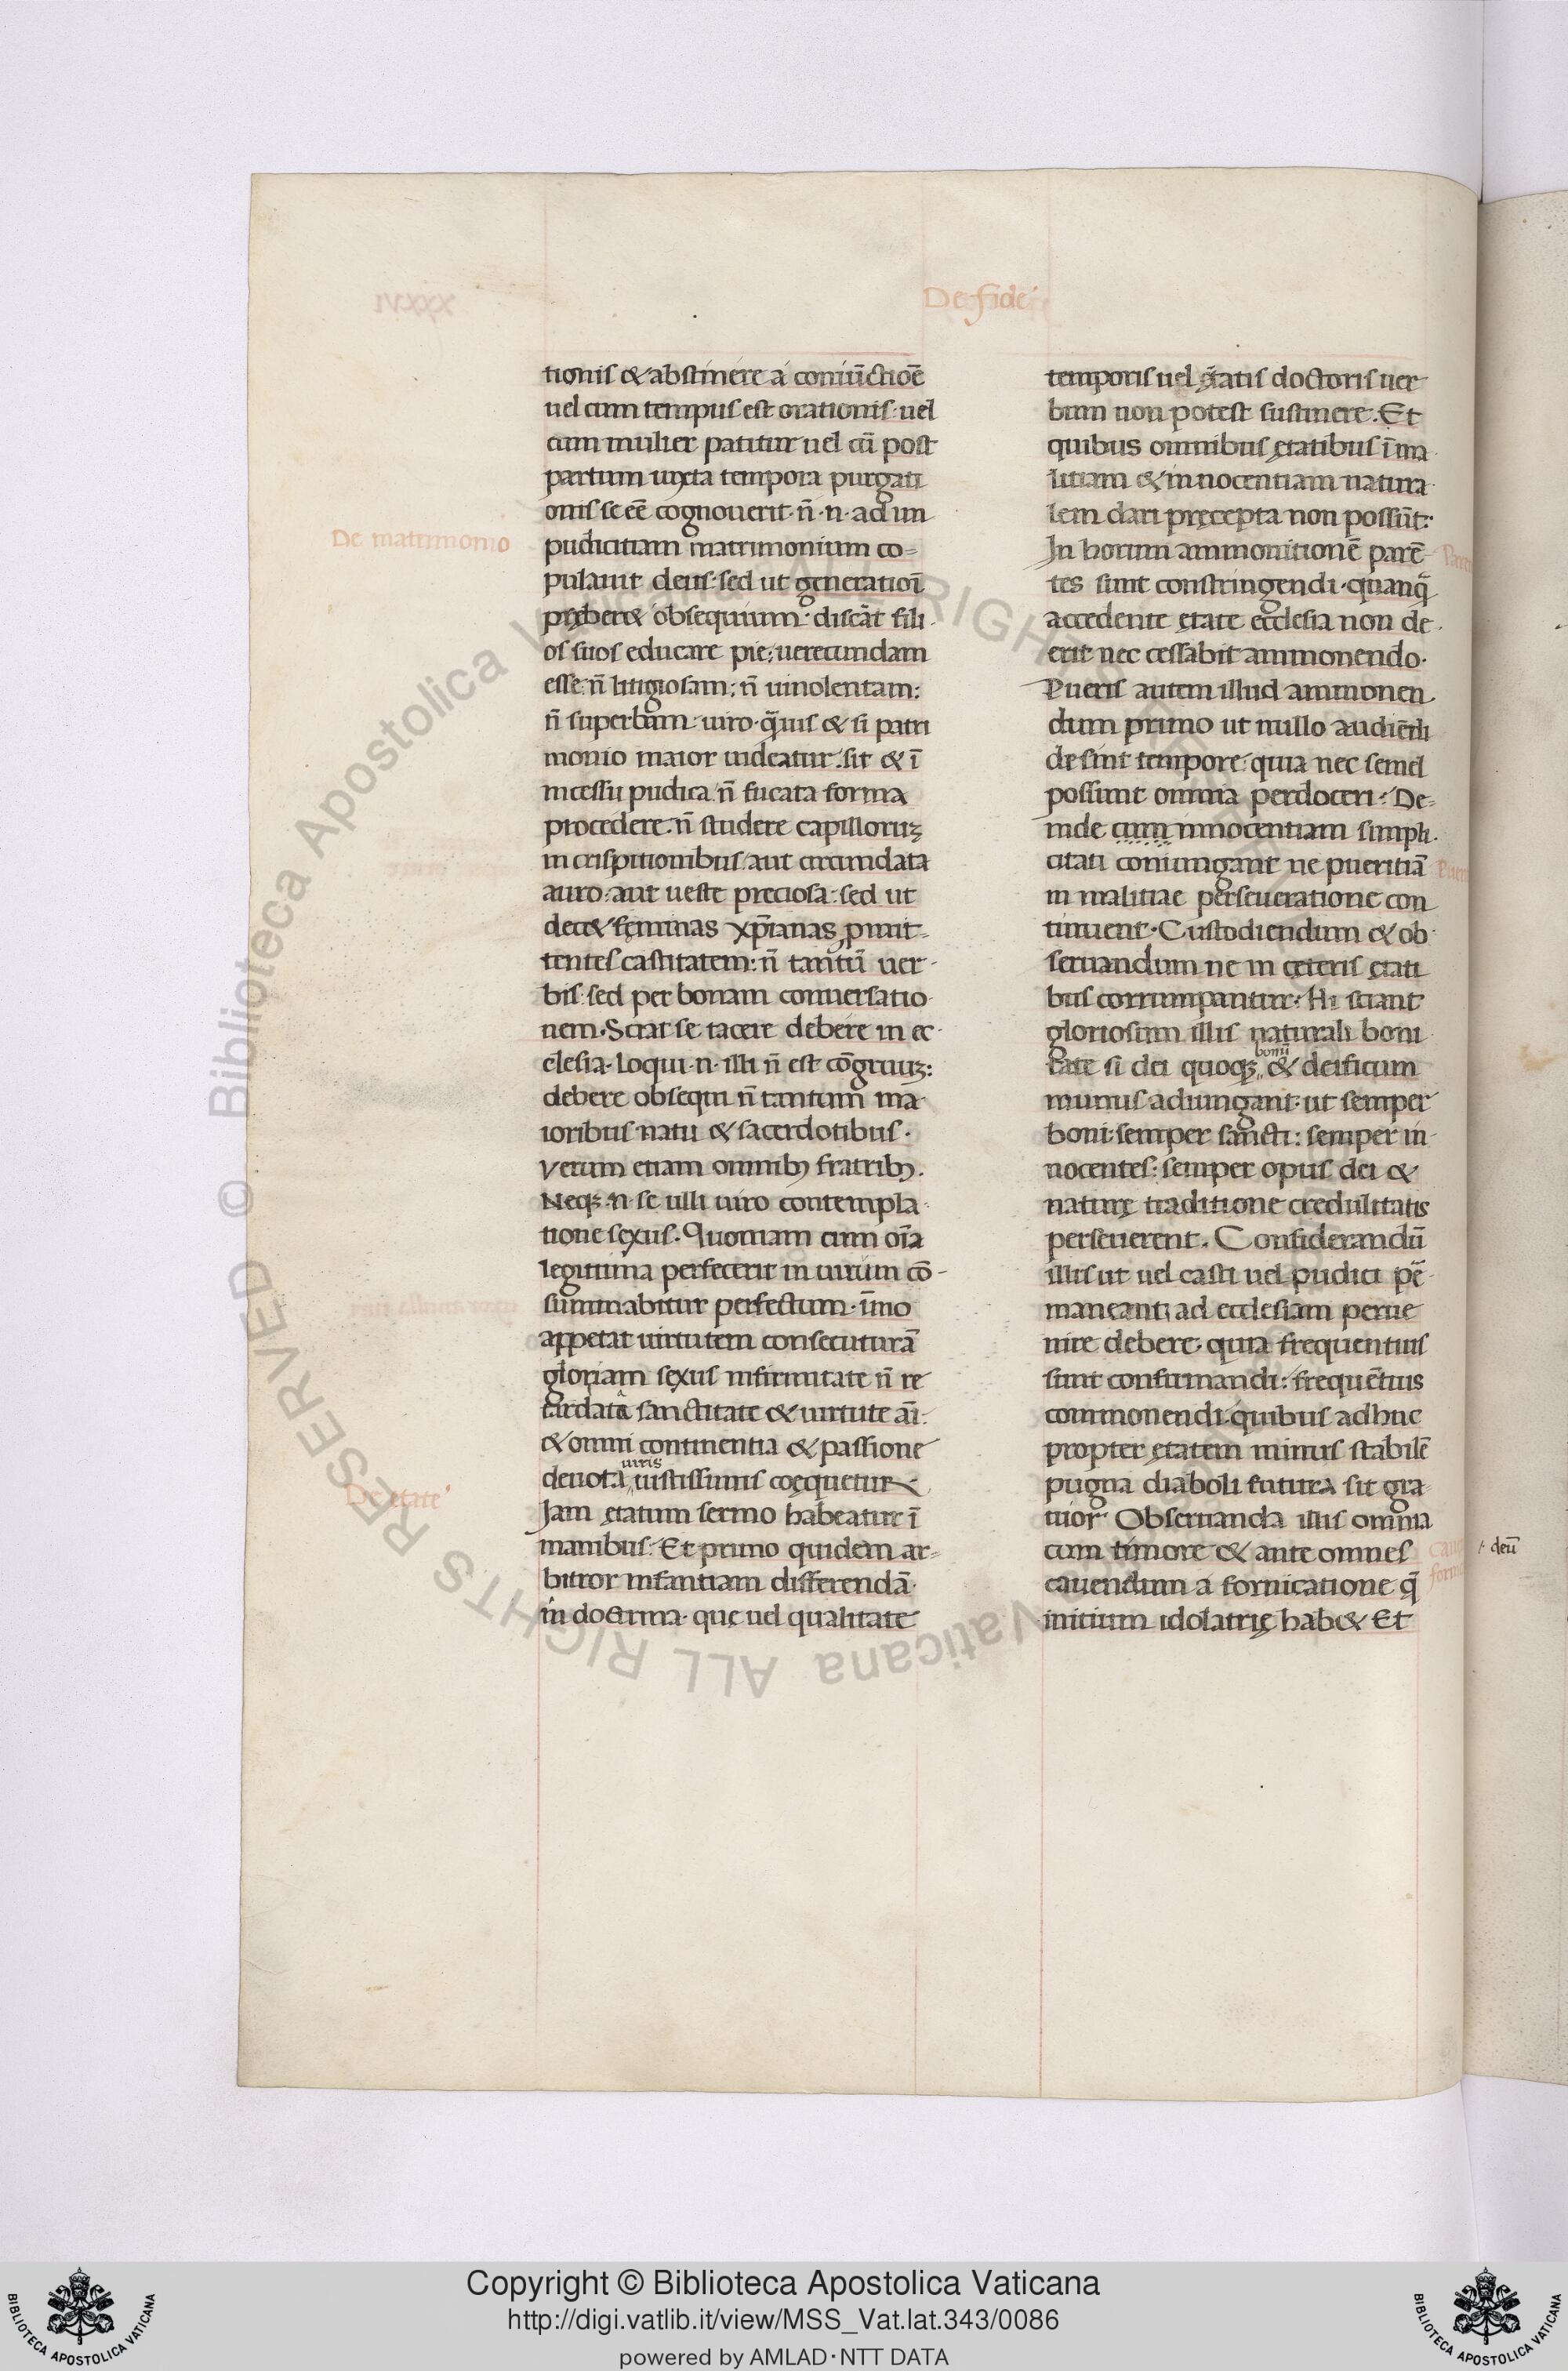 De fide
tionis & abstinere a coniūctiōe
uel cum tempus est orationis· uel
cum mulier patitur uel cū post
partum iuxta tempora purgati
onis se eē cognouerit· n̄ ·n· ad im
De matrimonio
pudicitiam matrimonium co=
pulauit deus· sed ut generatiōi
pręber& obsequium· discāt fili
os suos educare pie; uerecundam
esse: n̄ litigiosam; n̄ uinolentam:
n̄ superbam· uiro· q̄uis & si patri
monio maior uideatur· sit & ī
incessu pudica· n̄ fucata forma
procedere· n̄ studere capilloruꝫ
in crispitionibus· aut circumdata
auro· aut ueste preciosa· sed ut
dec& fęminas xp̄ianas, pmit-
tentes castitatem: n̄ tantū uer-
bis· sed per bonam conuersatio
nem· Sciat se tacere debere in ec-
clesia· loqui ·n· illi n̄ est cōgruuꝫ:
debere obsequi n̄ tantum ma-
ioribus natu & sacerdotibus·
verum etiam omnibꝫ fratribꝫ.
Neqꝫ ·n· se ulli uiro contempla-
tione sexus· Quoniam cum oīa
legittima perfecerit in uirum cō-
summabitur perfectum· īmo
appetat uirtutem consecuturā
gloriam sexus infirmitate n̄ re
tardatā sanctitate & uirtute aī·
& omni continentia & passione
uiris
deuota ,, iustissimis coęquetur
De etate
Jam ętatum sermo habeatur ī
manibus· Et primo quidem ar=
bitror infantiam differendā·
in doctrina· quę uel qualitate
temporis uel ętatis doctoris uer-
bum non potest sustinere. Et
quibus omnibus ętatibus ī ma-
litiam & innocentiam natura-
lem dari pręcepta non possūt:·
In horum ammonitionē parē-
tes sunt constringendi· quanq̄
accedente ętate ecclesia non de-
erit nec cessabit ammonendo·
Pueris autem illud ammonen
dum primo ut nullo audiēdi
desint tempore· quia nec semel
possunt omnia perdoceri· De=
inde cum innocentiam simpli-
citati coniungant ne pueritiā
in malitiae perseueratione con
tinuent· Custodiendum & ob-
seruandum ne in ceteris ętati
bus corrumpantur· Hi sciant
gloriosum illis naturali boni
bonū
tate si dei quoqꝫ ,, & deificum
munus adiungant· ut semper
boni· semper sancti: semper in-
nocentes: semper opus dei &
naturę traditione credulitatis
perseuerent. Considerandū
illis ut uel casti uel pudici pē-
maneant· ad ecclesiam perue
nire debere· quia frequentius
sunt confirmandi: frequētius
commonendi· quibus adhuc
propter ętatem minus stabilē
pugna diaboli futura sit gra-
uior· Obseruanda illis omnia
cum timore & ante omnes
cauendum a fornicatione q̄
initium idolatrię hab& Et
deū
Copyright © Biblioteca Apostolica Vaticana
http://digi.vatlib.it/view/MSS_Vat.lat.343/0086
powered by AMLAD·NTT DATA
BIBLIOTECA APOSTOLICA VATICANA
BIBLIOTECA APOSTOLICA VATICANA
© Biblioteca Apostolica Vaticana ALL RIGHTS RESERVED